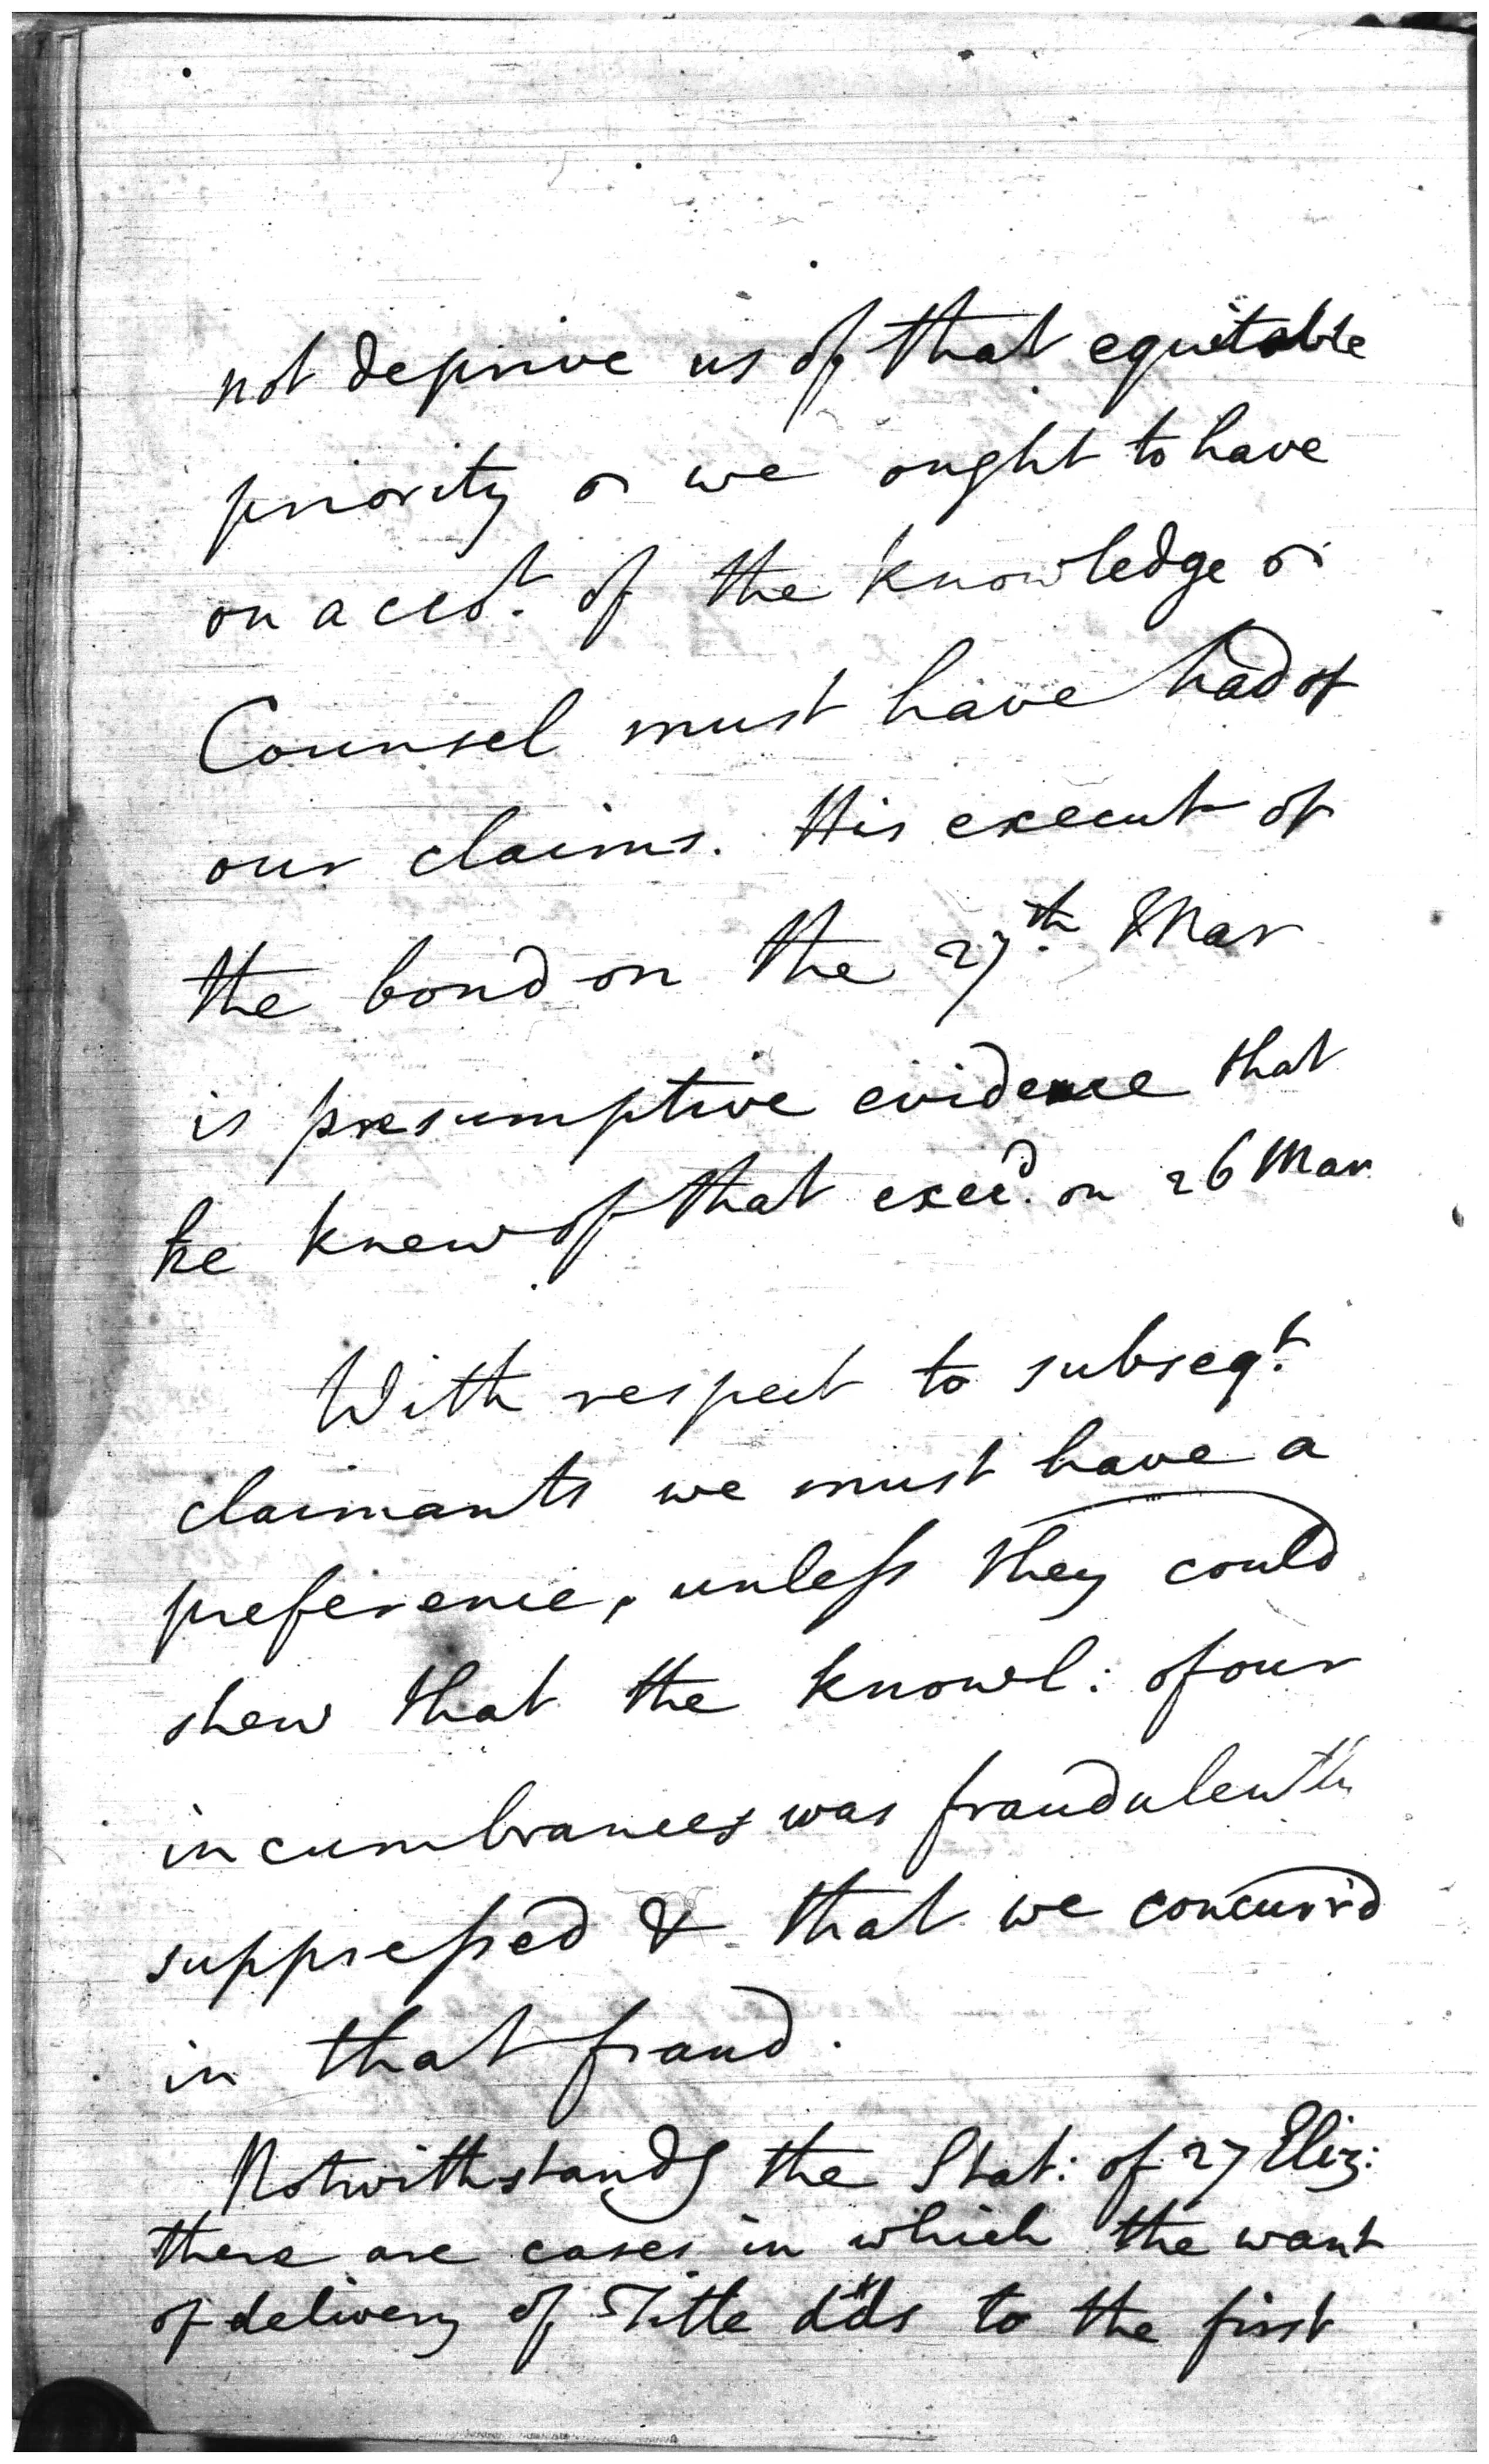 not deprive us of that equitable
priority we ought to have
on acco.t of the knowledge
Counsel must have had of
our claims. His execut of
the bond on the 27.th Mar
is presumptive evidence that
he knew of that exec.d on 26 Mar
With respect to subseq.t
claimants we must have a
preference, unless they could
shew that the knowl: of our
incumbrances was fraudulently
suppressed & that we concurr'd
in that fraud.
Notwithstandg the Stat: of 27 Eliz:
there are cases in which the want
of delivery of Title dds to the first